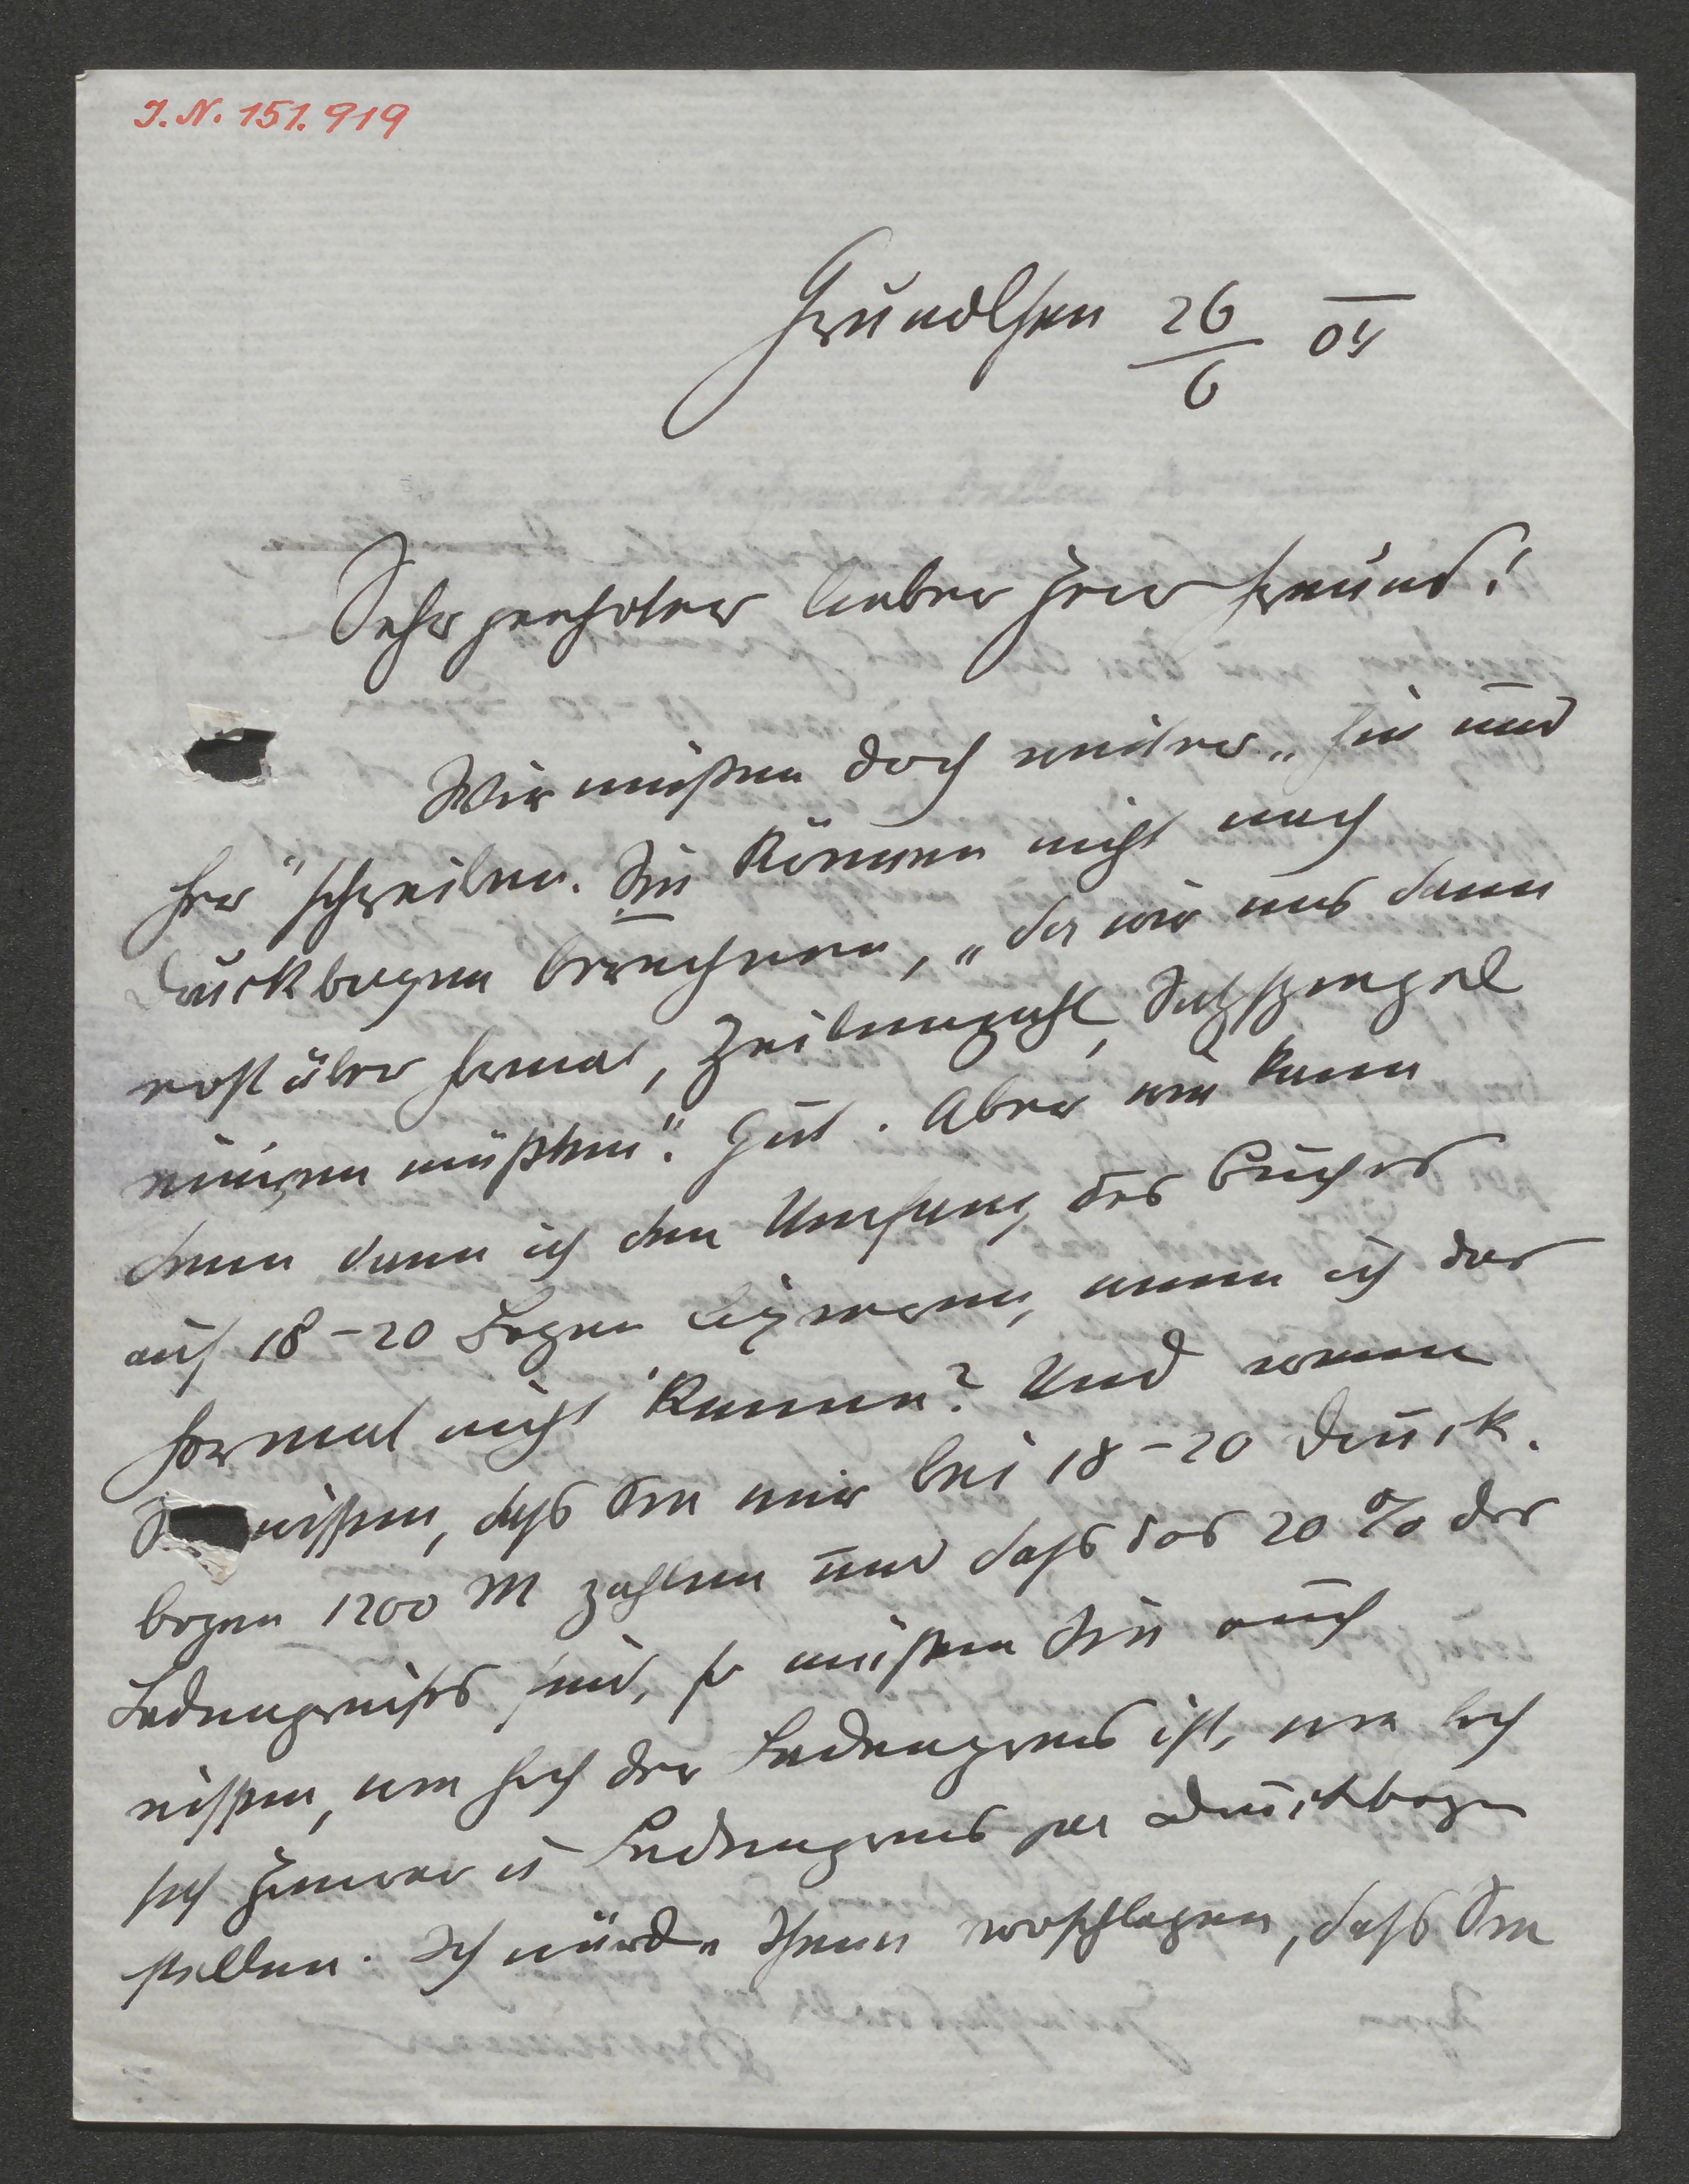 J. N. 151.919
Grundlsee 26/6 04
Sehr geehrter lieber Herr Freund!
Wir müssen doch weiter „hin und
her“ schreiben. Sie können nicht nach
Druckbogen berechnen, „da wir uns dann
erst über Format, Zeilenzahl, Satzspiegel
einigen müßten“. Gut. Aber wie kann
denn dann ich den Umfang des Buches
auf 18–20 Bogen, wenn ich das
Format nicht kenne? Und wenn
S wissen, daß Sie mir bei 18–20 Druck-
bogen 1200 M zahlen und daß das 20 % des
Ladenpreises sind, so müssen Sie auch
wissen, wie hoch der Ladenpreis ist, wie hoch
sich Honorar u Ladenpreis per Druckbogen
stellen. Ich würde Ihnen vorschlagen, daß Sie